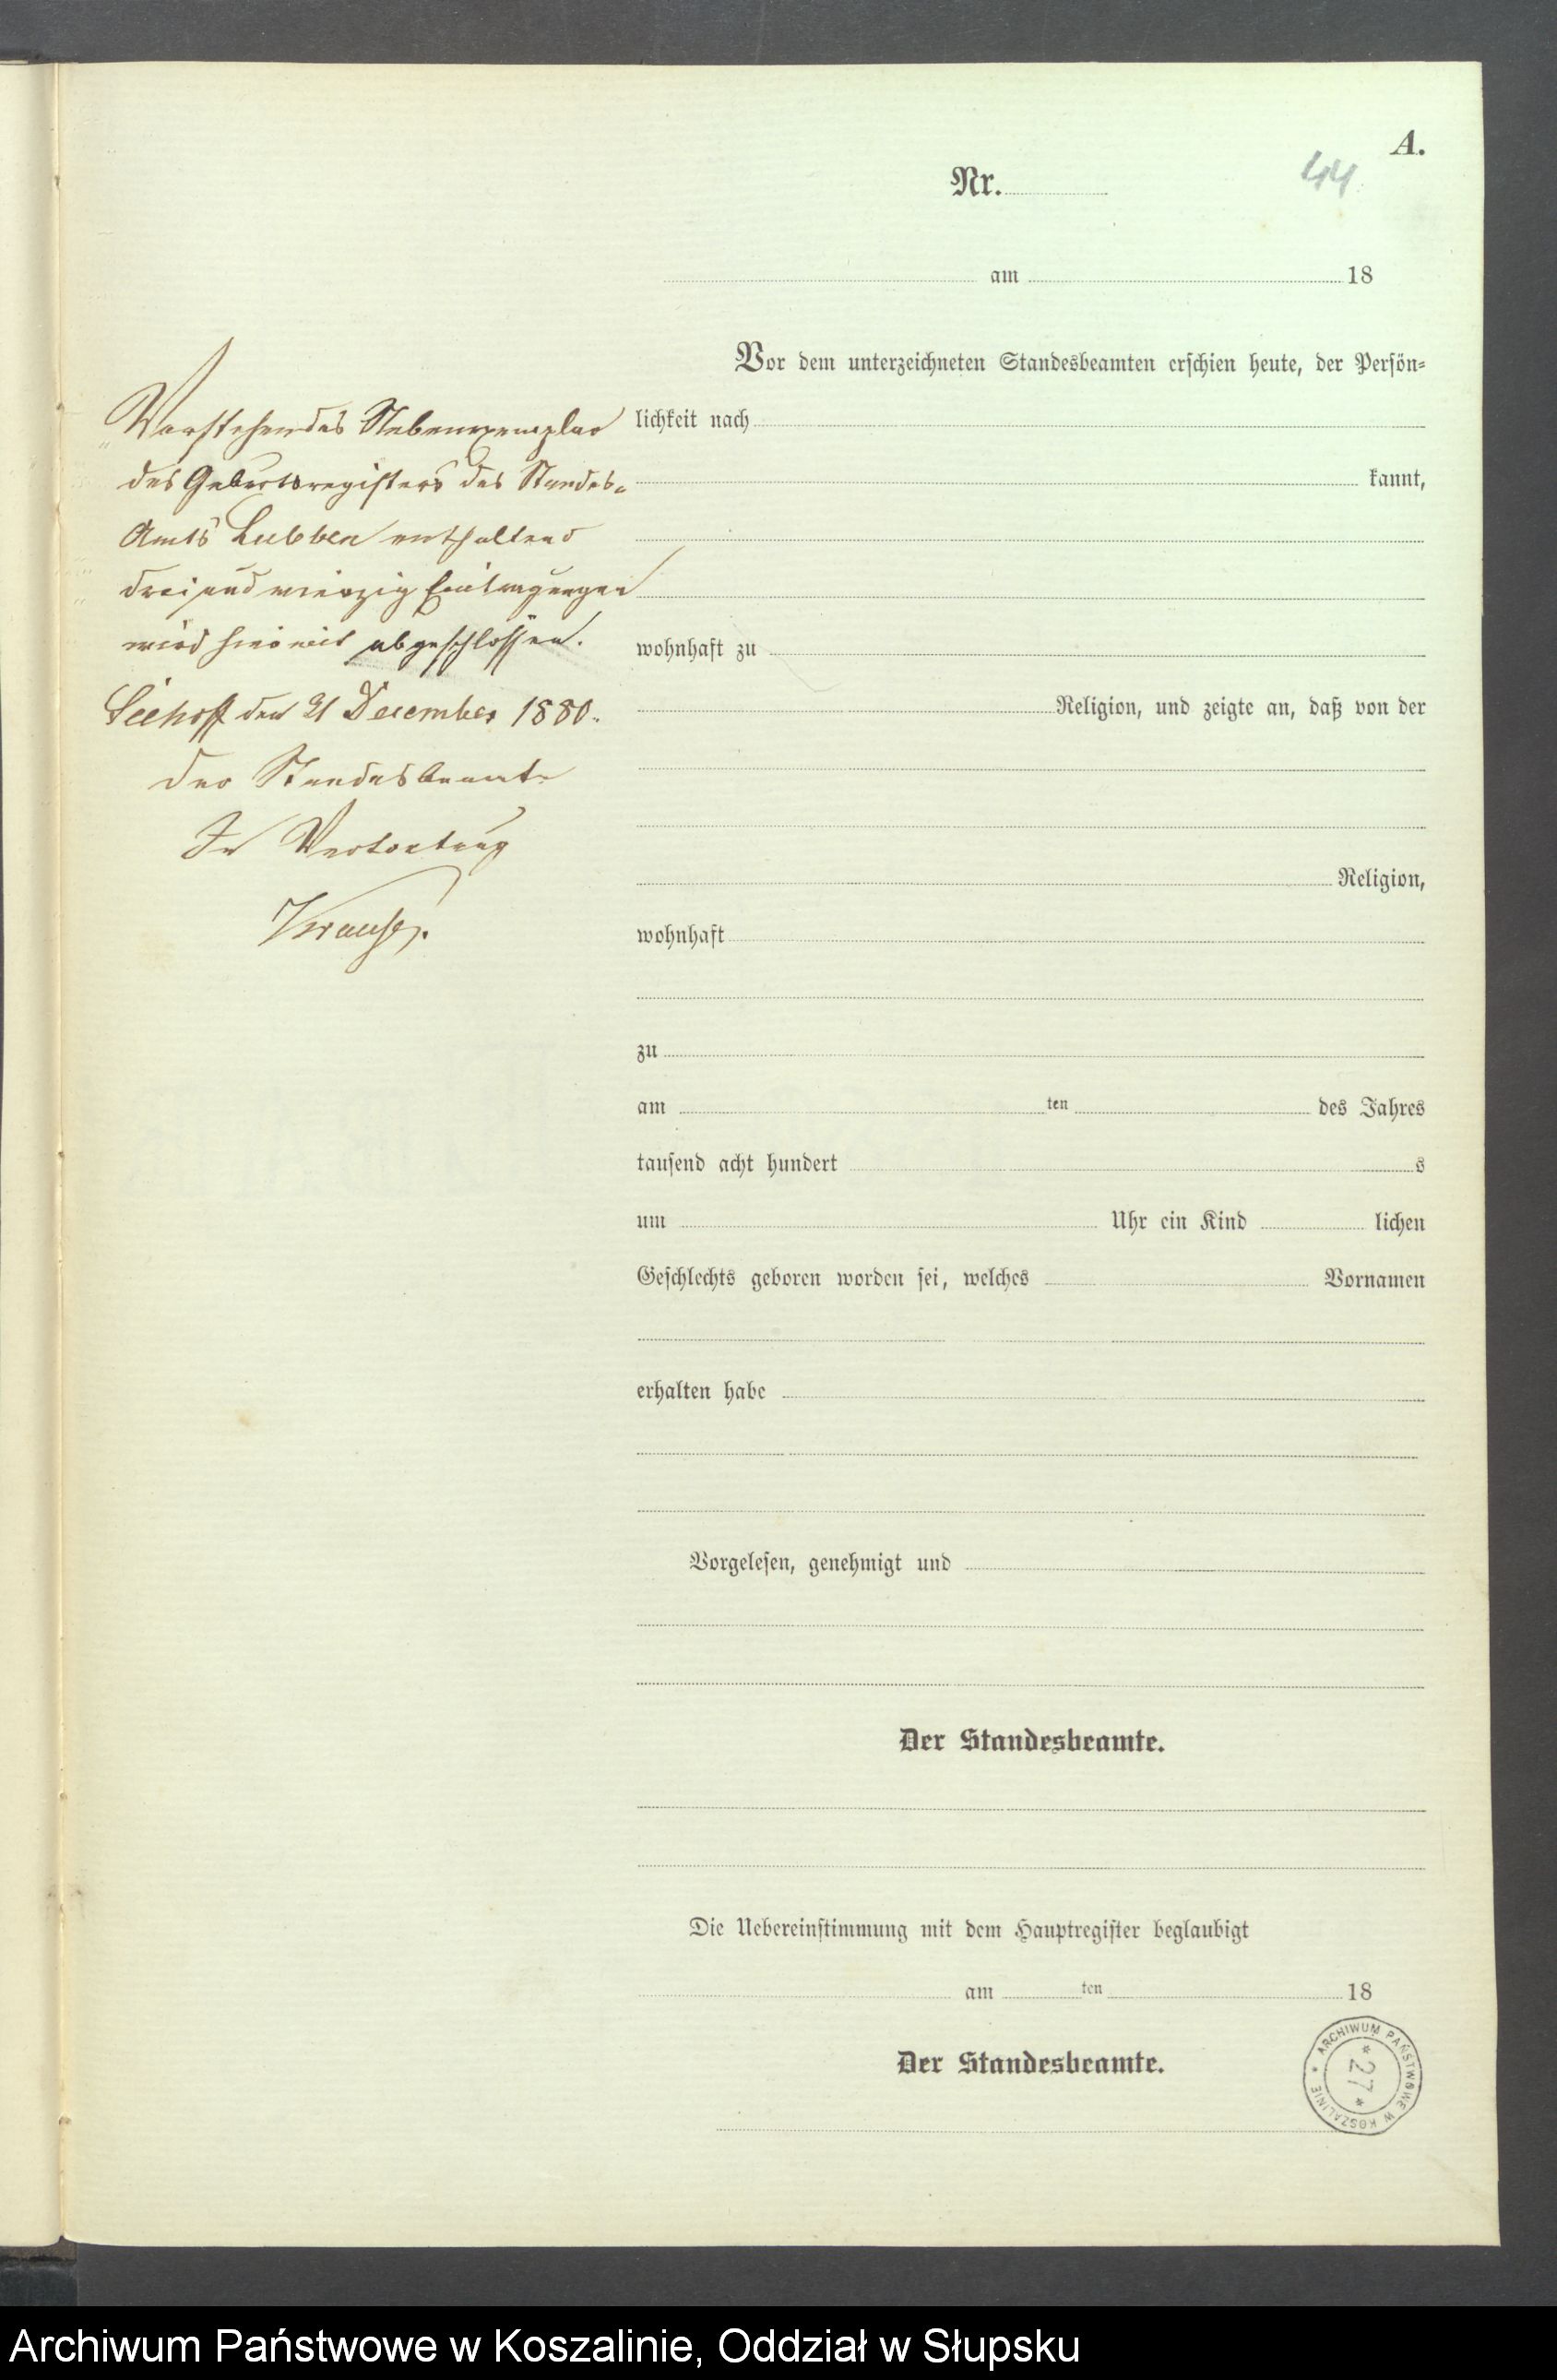 A.
Nr.
44
am 18
Vor dem unterzeichneten Standesbeamten erschien heute, der Persön-
lichkeit nach
kannt,
wohnhaft zu
Religion, und zeigte an, daß von der
Religion,
wohnhaft
zu
am ten des Jahres
tausend acht hundert s
um Uhr ein Kind lichen
Geschlechts geboren worden sei, welches Vornamen
erhalten habe
Vorgelesen, genehmigt und
Der Standesbeamte.
Die Uebereinstimmung mit dem Hauptregister beglaubigt
am ten 18
Der Standesbeamte.
Vorstehendes Nebenexemplar
des Geburtsregisters des Standes-
Amts Lubben enthaltend
dreiundvierzig Eintragungen
wird hiermit abgeschlossen.
den 21 December 1880.
Der Standesbeamte
In Vertretung
Krause.
ARCHIWUM PAŃSTWOWE W KOSZALINIE * 
* 27 *
Archiwum Państwowe w Koszalinie, Oddział w Słupsku